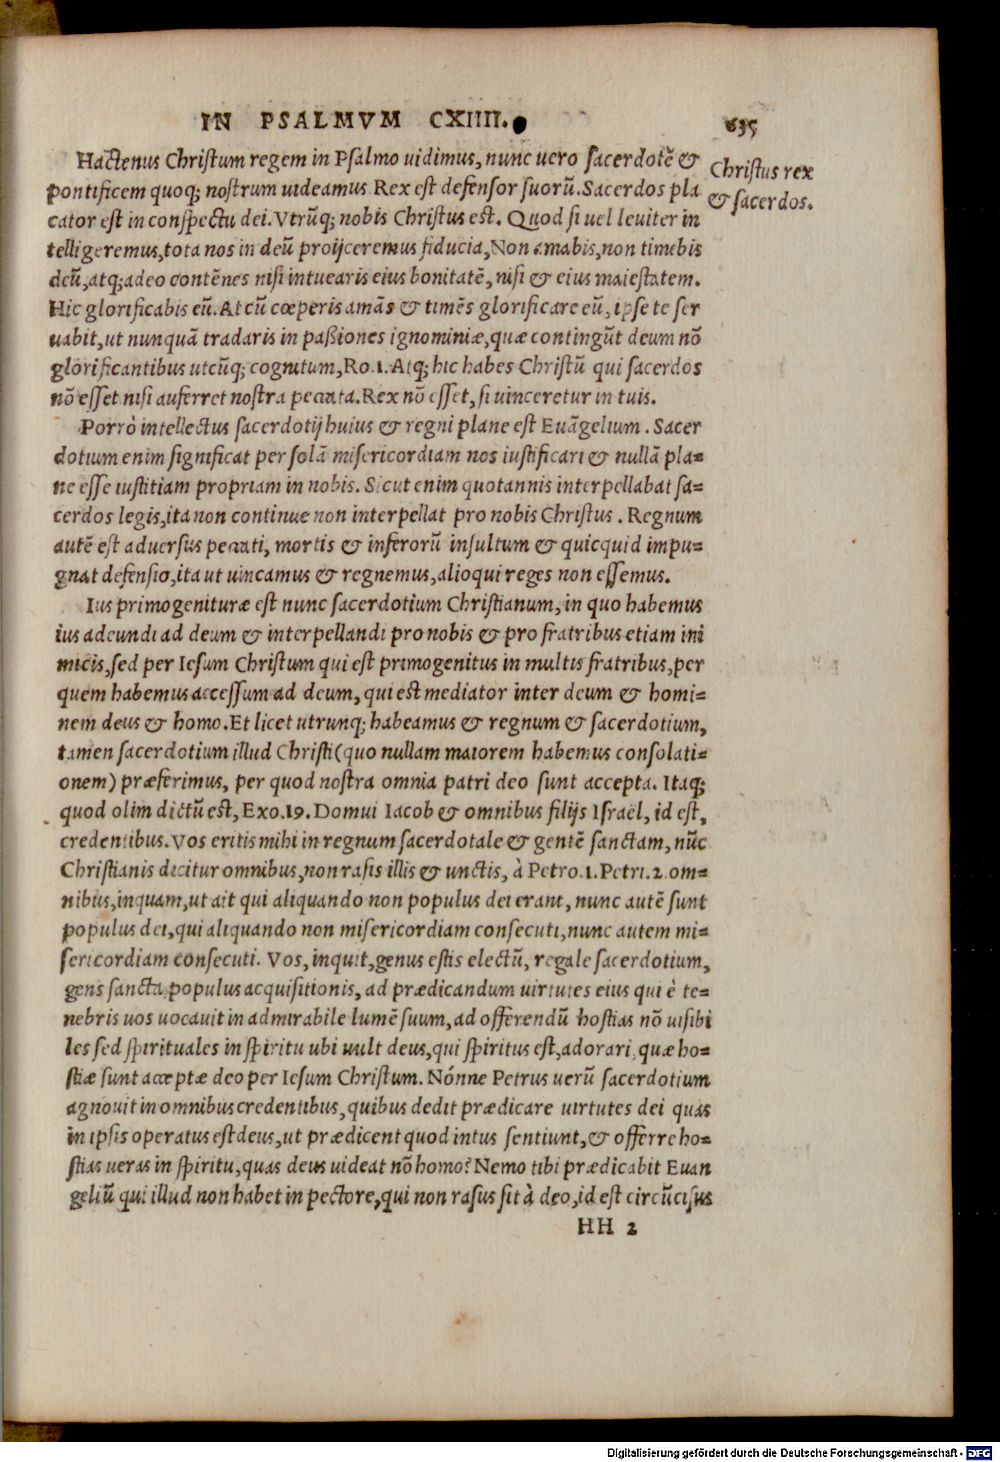 IN PSALMVM CXIIII.
635
Hactenus Christum regem in Psalmo uidimus, nunc uero sacerdotē &
pontificem quoq; nostrum uideamus Rex est defensor suorū. Sacerdos pla
cator est in conspectu dei. Vtrūq; nobis Christus est. Quod si uel leuiter in
telligeremus, tota nos in deū proijceremus fiducia, Non amabis, non timebis
deū, atq; adeo contēnes nisi intuearis eius bonitatē, nisi & eius maiestatem.
Hic glorificabis eū. At cū cœperis amās & timēs glorificare eū, ipse te ser
uabit, ut nunquā tradaris in paßiones ignominiæ, quæ contingūt deum nō
glorificantibus utcūq; cognitum, Ro.1. Atq; hic habes Christū qui sacerdos
nō esset nisi auferret nostra peccata. Rex nō esset, si uinceretur in tuis.
Porrò intellectus sacerdotij huius & regni plane est Euāgelium. Sacer
dotium enim significat per solā misericordiam nos iustificari & nullā pla=
ne esse iustitiam propriam in nobis. Sicut enim quotannis interpellabat sa=
cerdos legis, ita non continue non interpellat pro nobis Christus. Regnum
autē est aduersus peccati, mortis & inferorū insultum & quicquid impu=
gnat defensio, ita ut uincamus & regnemus, alioqui reges non essemus.
Ius primogenituræ est nunc sacerdotium Christianum, in quo habemus
ius adeundi ad deum & interpellandi pro nobis & pro fratribus etiam ini
micis, sed per Iesum Christum qui est primogenitus in multis fratribus, per
quem habemus accessum ad deum, qui est mediator inter deum & homi=
nem deus & homo. Et licet utrunq; habeamus & regnum & sacerdotium,
tamen sacerdotium illud Christi (quo nullam maiorem habemus consolati=
onem) præferimus, per quod nostra omnia patri deo sunt accepta. Itaq;
quod olim dictū est, Exo.19. Domui Iacob & omnibus filijs Israel, id est,
credentibus. Vos eritis mihi in regnum sacerdotale & gentē sanctam, nūc
Christianis dicitur omnibus, non rasis illis & unctis, à Petro.1. Petri.2. om=
nibus, inquam, ut ait qui aliquando non populus dei erant, nunc autē sunt
populus dei, qui aliquando non misericordiam consecuti, nunc autem mi=
sericordiam consecuti. Vos, inquit, genus estis electū, regale sacerdotium,
gens sancta, populus acquisitionis, ad prædicandum uirtutes eius qui è te=
nebris uos uocauit in admirabile lumē suum, ad offerendū hostias nō uisibi
les sed spirituales in spiritu ubi uult deus, qui spiritus est, adorari, quæ ho=
stiæ sunt acceptæ deo per Iesum Christum. Nónne Petrus uerū sacerdotium
agnouit in omnibus credentibus, quibus dedit prædicare uirtutes dei quas
in ipsis operatus est deus, ut prædicent quod intus sentiunt, & offerre ho=
stias ueras in spiritu, quas deus uideat nō homo? Nemo tibi prædicabit Euan
geliū qui illud non habet in pectore, qui non rasus sit à deo, id est circūcisus
HH 2
Christus rex
& sacerdos.
Digitalisierung gefördert durch die Deutsche Forschungsgemeinschaft - DFG